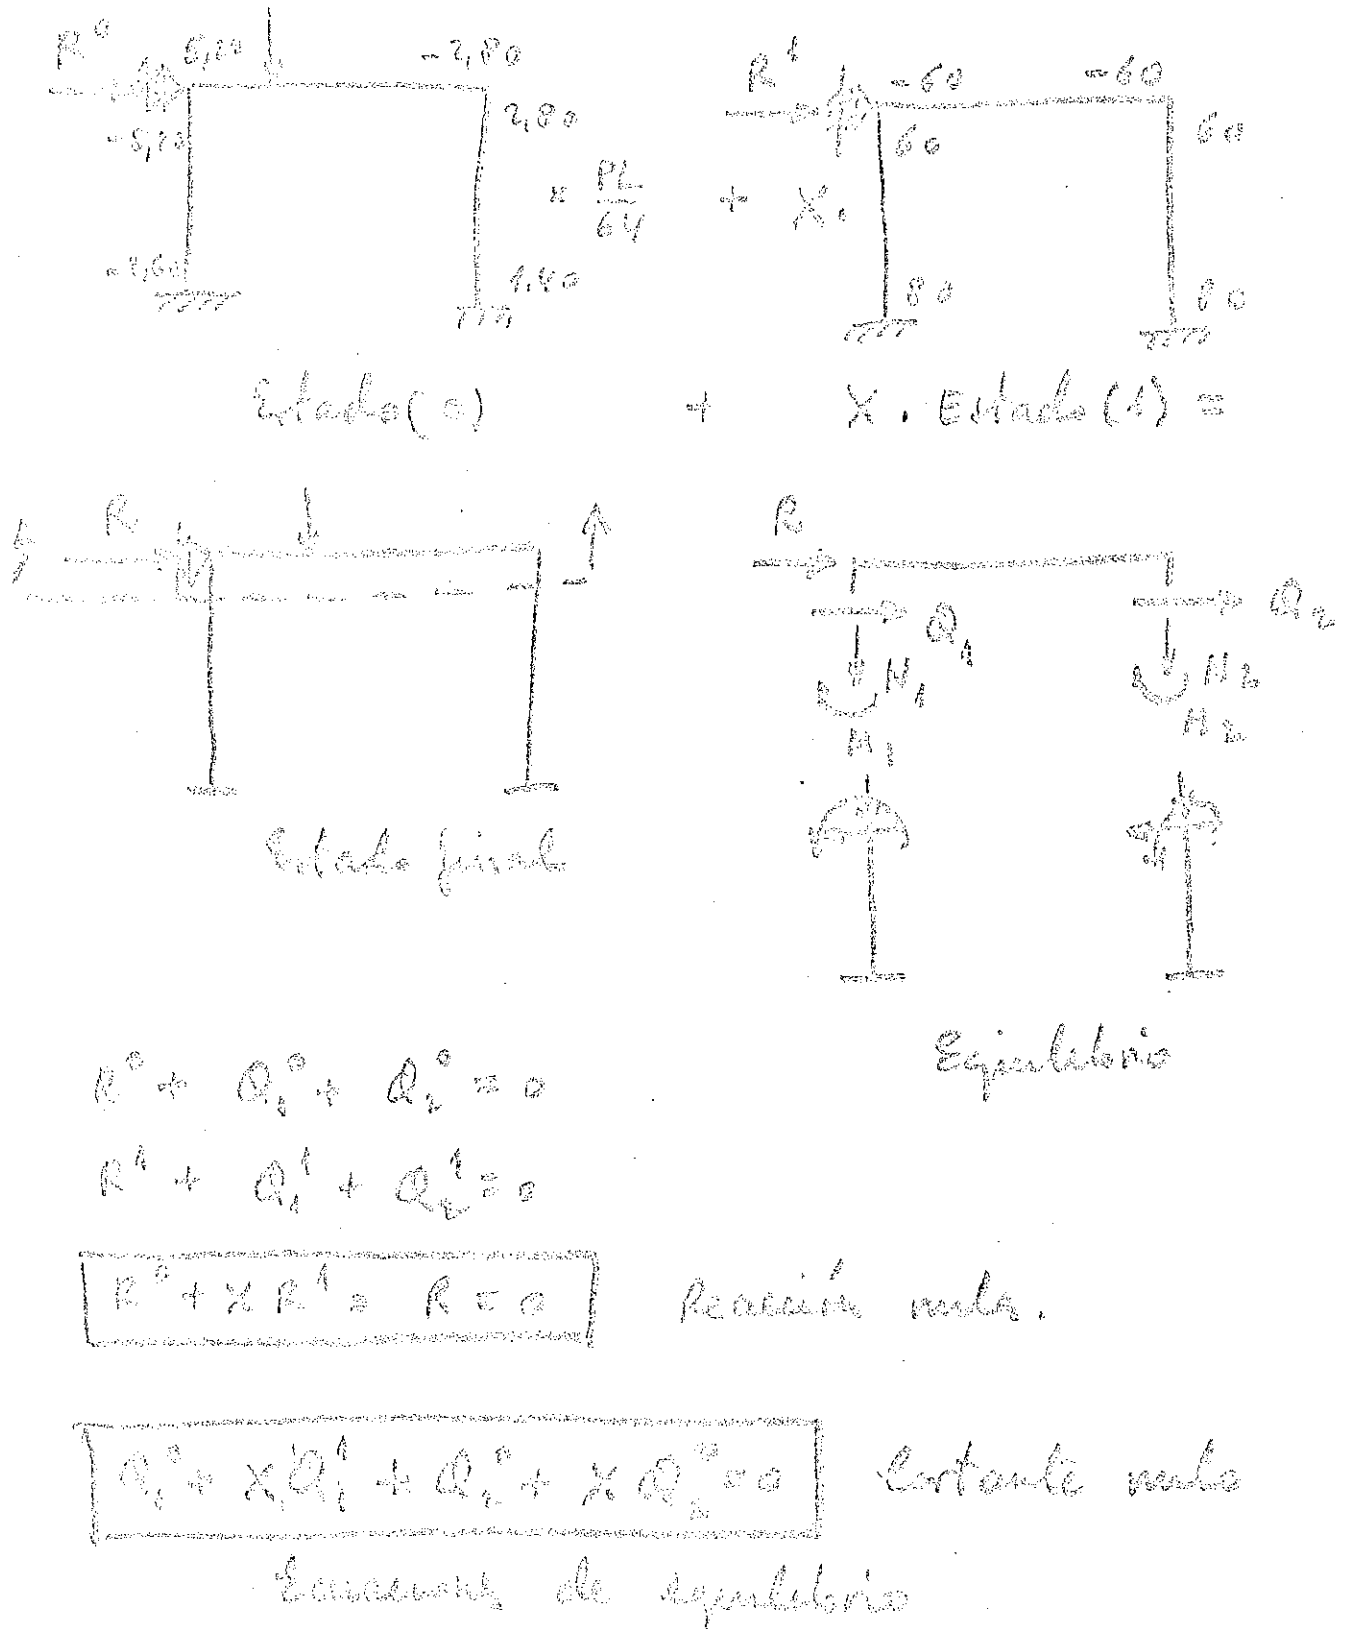 R⁰ -2,80
2,80
× PL/64 + X.
1,40
R¹ -60 -60
60 60
80 80
Estado(0) + X. Estado(1) =
R
Estado final
R
Q₁ Q₂
N₁ N₂
M₁ M₂
Equilibrio
R⁰ + Q₁⁰ + Q₂⁰ = 0
R¹ + Q₁¹ + Q₂¹ = 0
R⁰ + X R¹ = R = 0 Reacción nula.
Q₁⁰ + X Q₁¹ + Q₂⁰ + X = 0 Cortante nulo
Ecuaciones de equilibrio